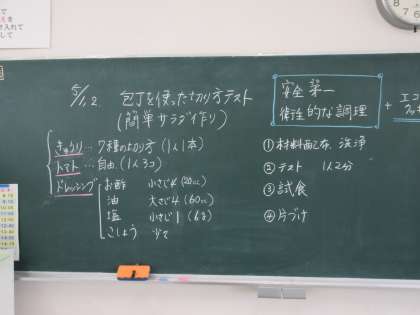 5/12. 包丁を使った切り方テスト
(簡単サラダ作り)
きゅうり…7種の切り方(1人1本)
トマト…自由.(1人3コ)
ドレッシング
お酢 小さじ4(20cc)
油 大さじ4(60cc)
塩 小さじ1(6g)
こしょう 少々
安全第一
衛生的な調理
+ エコ
①材料配布、洗浄
②テスト 1人2分
③試食
④片づけ
入れて